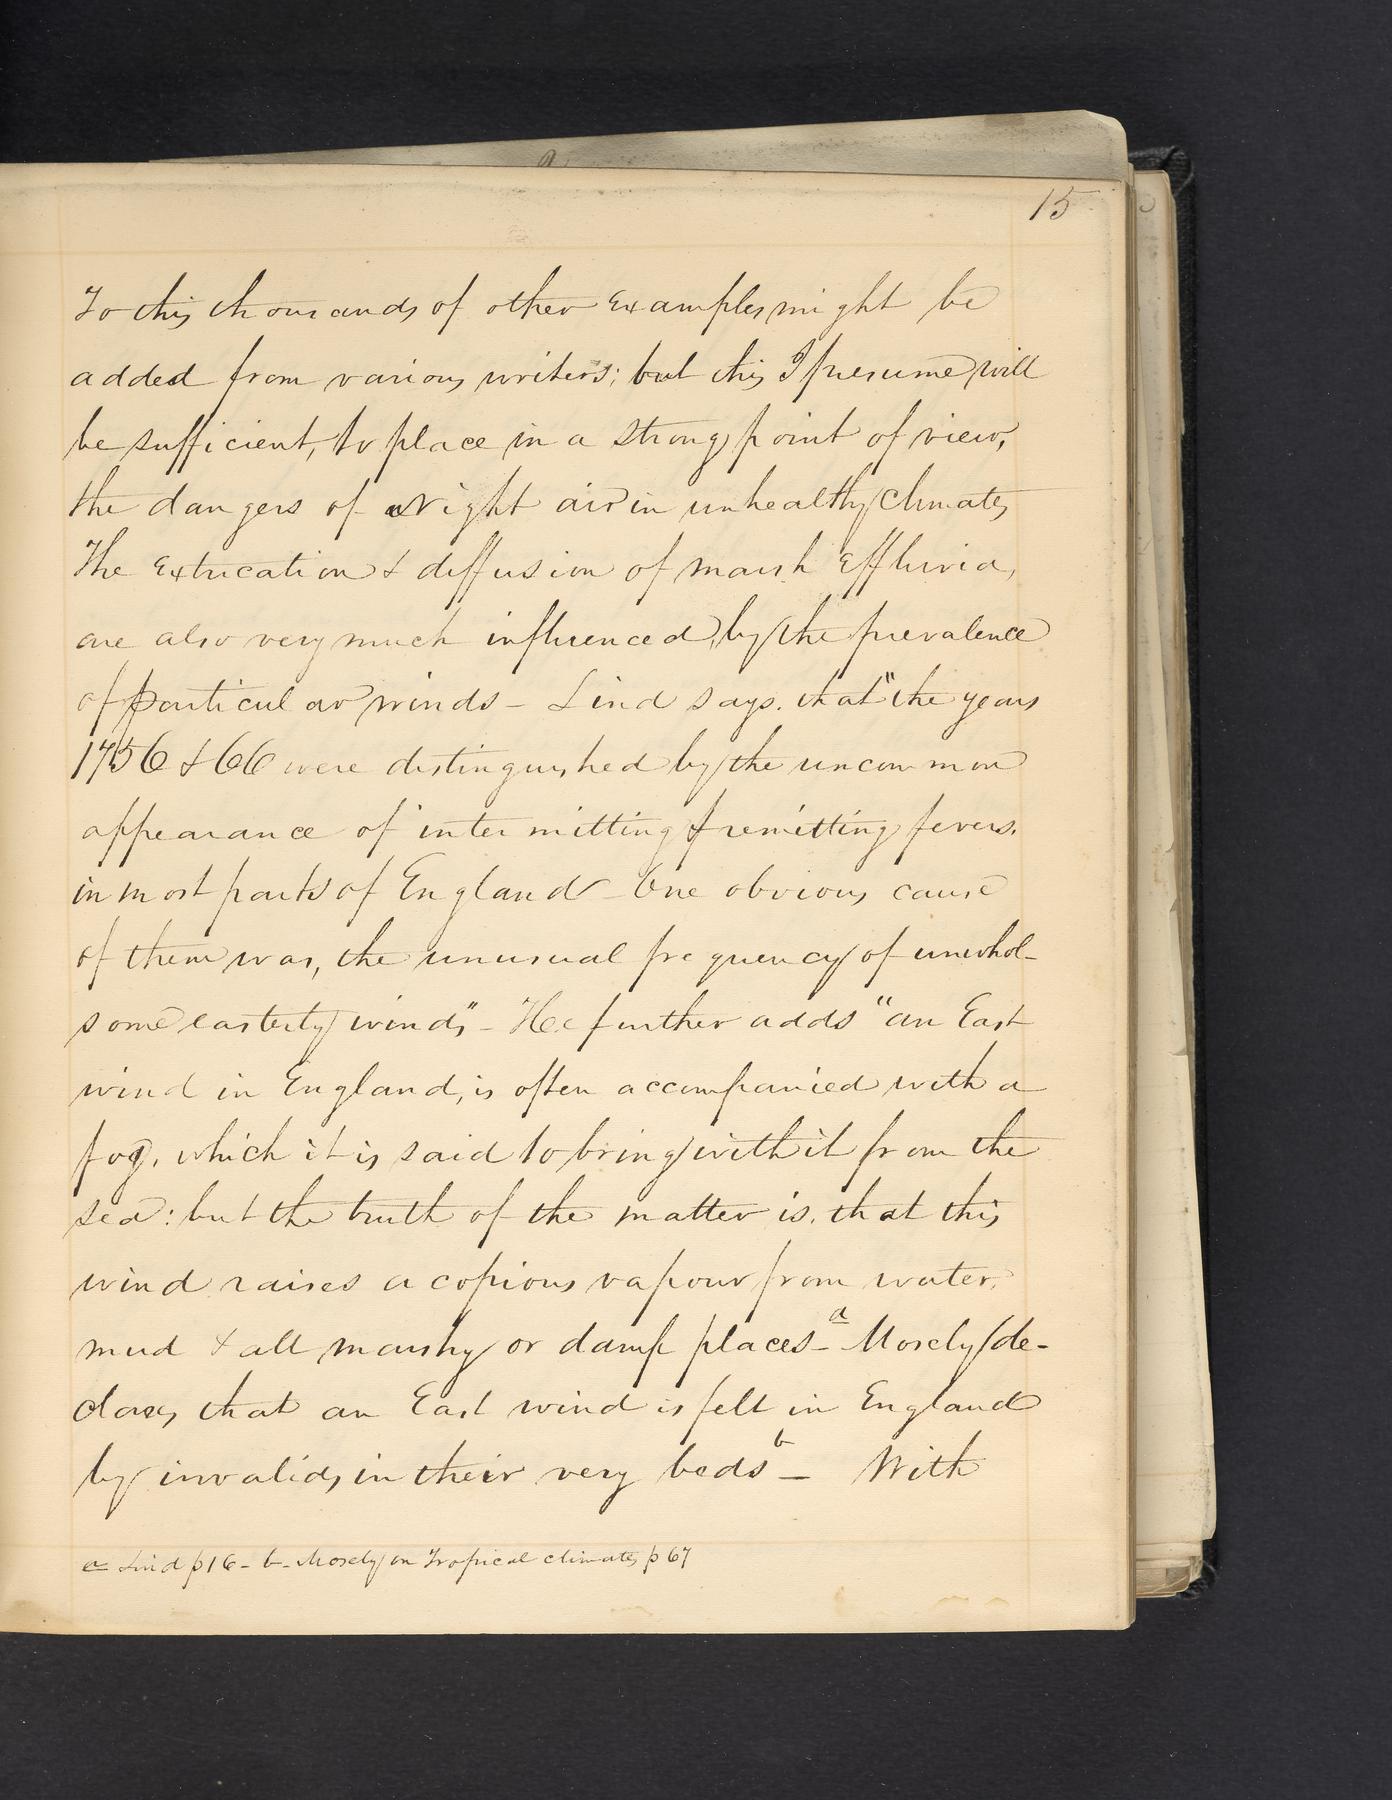 15
To this thousands of other Examples might be
added from various writers; but this I presume will
be sufficient, to place in a strong point of view,
the dangers of Night air in unhealthy climates
The Extrication & diffusion of marsh Effluvia,
are also very much influenced, by the prevalence
of particular winds – Lind says. that "the years
1756 & 66 were distinguished by the uncommon
appearance of intermitting & remitting fevers.
in most parts of England – One obvious cause
of them was, the unusual frequency of unwhol-
some easterly winds" – He further adds "an East
wind in England, is often accompanied with a
fog, which it is said to bring with it from the
sea: but the truth of the matter is. that this
wind raises a copious vapour from water,
mud & all marshy or damp places – a Mosely de-
clares that an East wind is felt in England
by invalids, in their very beds b – With
a Lind p 16 – b – Mosely on Tropical climates p 67